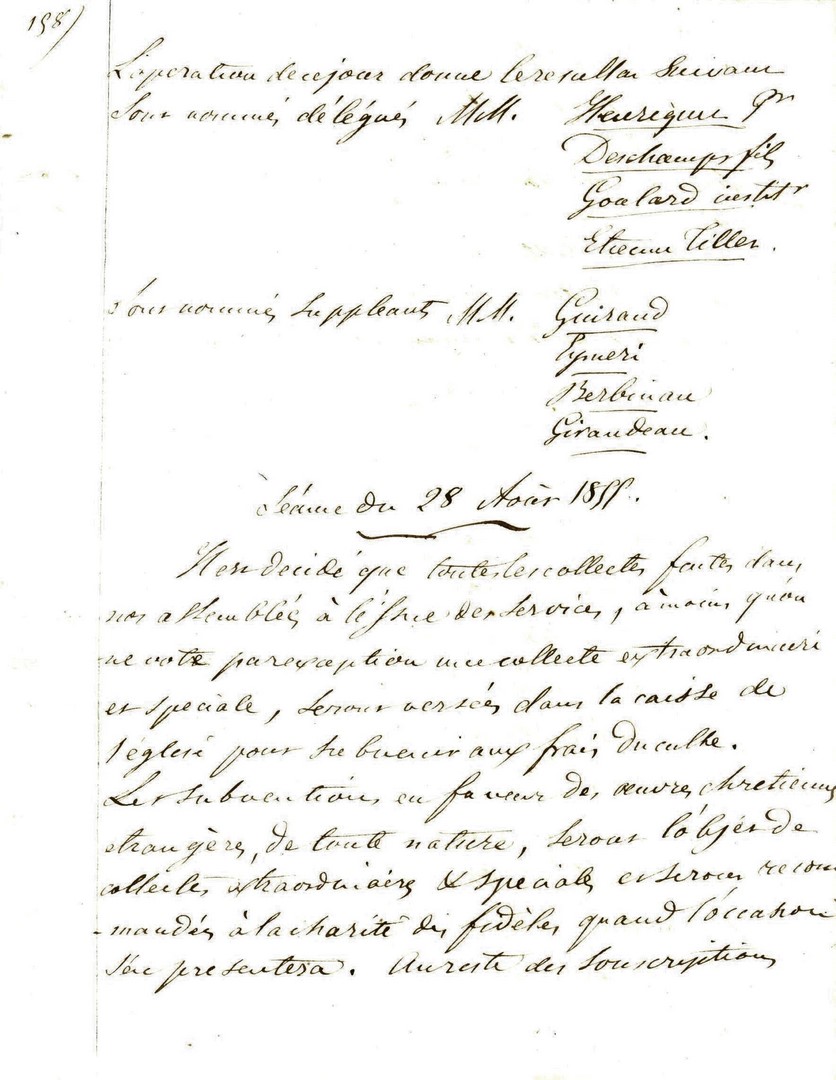 158)
L'opération de ce jour donne le resultat Suivant
Sont nommés délégués MM. Henriquet pr
Deschamps fils
Goulard institr
Etienne Tiller.
Sont nommés Suppleants MM. Guiraud
Eymeri
Berbinau
Giraudeau.
Séance du 28 Août 1855.
Il est decidé que toutes les collectes faites dans
nos assemblées à l'éssue des services, à moins qu'on
ne vote par exception une collecte extraordinaire
et speciale, seront versées dans la caisse de
l'église pour subvenir aux frais du culte.
Les subventions en faveur des œuvres chretiennes
etrangères, de toute nature, seront l'objet de
collectes extraordinaires & speciales et seront recom
-mandées à la charité des fidèles quand l'occasion
s'en presentera. Au reste des souscriptions